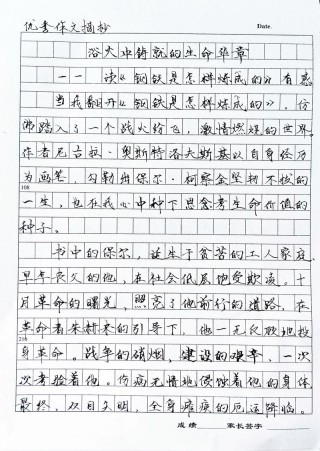 优秀作文摘抄
Date.
浴火中铸就的生命华章
——读《钢铁是怎样炼成的》有感
当我翻开《钢铁是怎样炼成的》，仿
佛踏入了一个战火纷飞，激情燃烧的世界。
作者尼古拉·奥斯特洛夫斯基以自身经历
为画笔，勾勒出保尔·柯察金坚韧不拔的
一生，也在我心中种下思考生命价值的
种子。
108
书中的保尔，诞生于贫苦的工人家庭，
早年丧父的他，在社会低层饱受欺凌。十
月革命的曙光，照亮了他前行的道路，在
革命者朱赫来的引导下，他一无反顾地投
身革命。战争的硝烟，建设的艰辛，一次
216
次考验着他。伤病无情地侵蚀着他的身体，
最终，双目失明，全身瘫痪的厄运降临。
成绩 家长签字